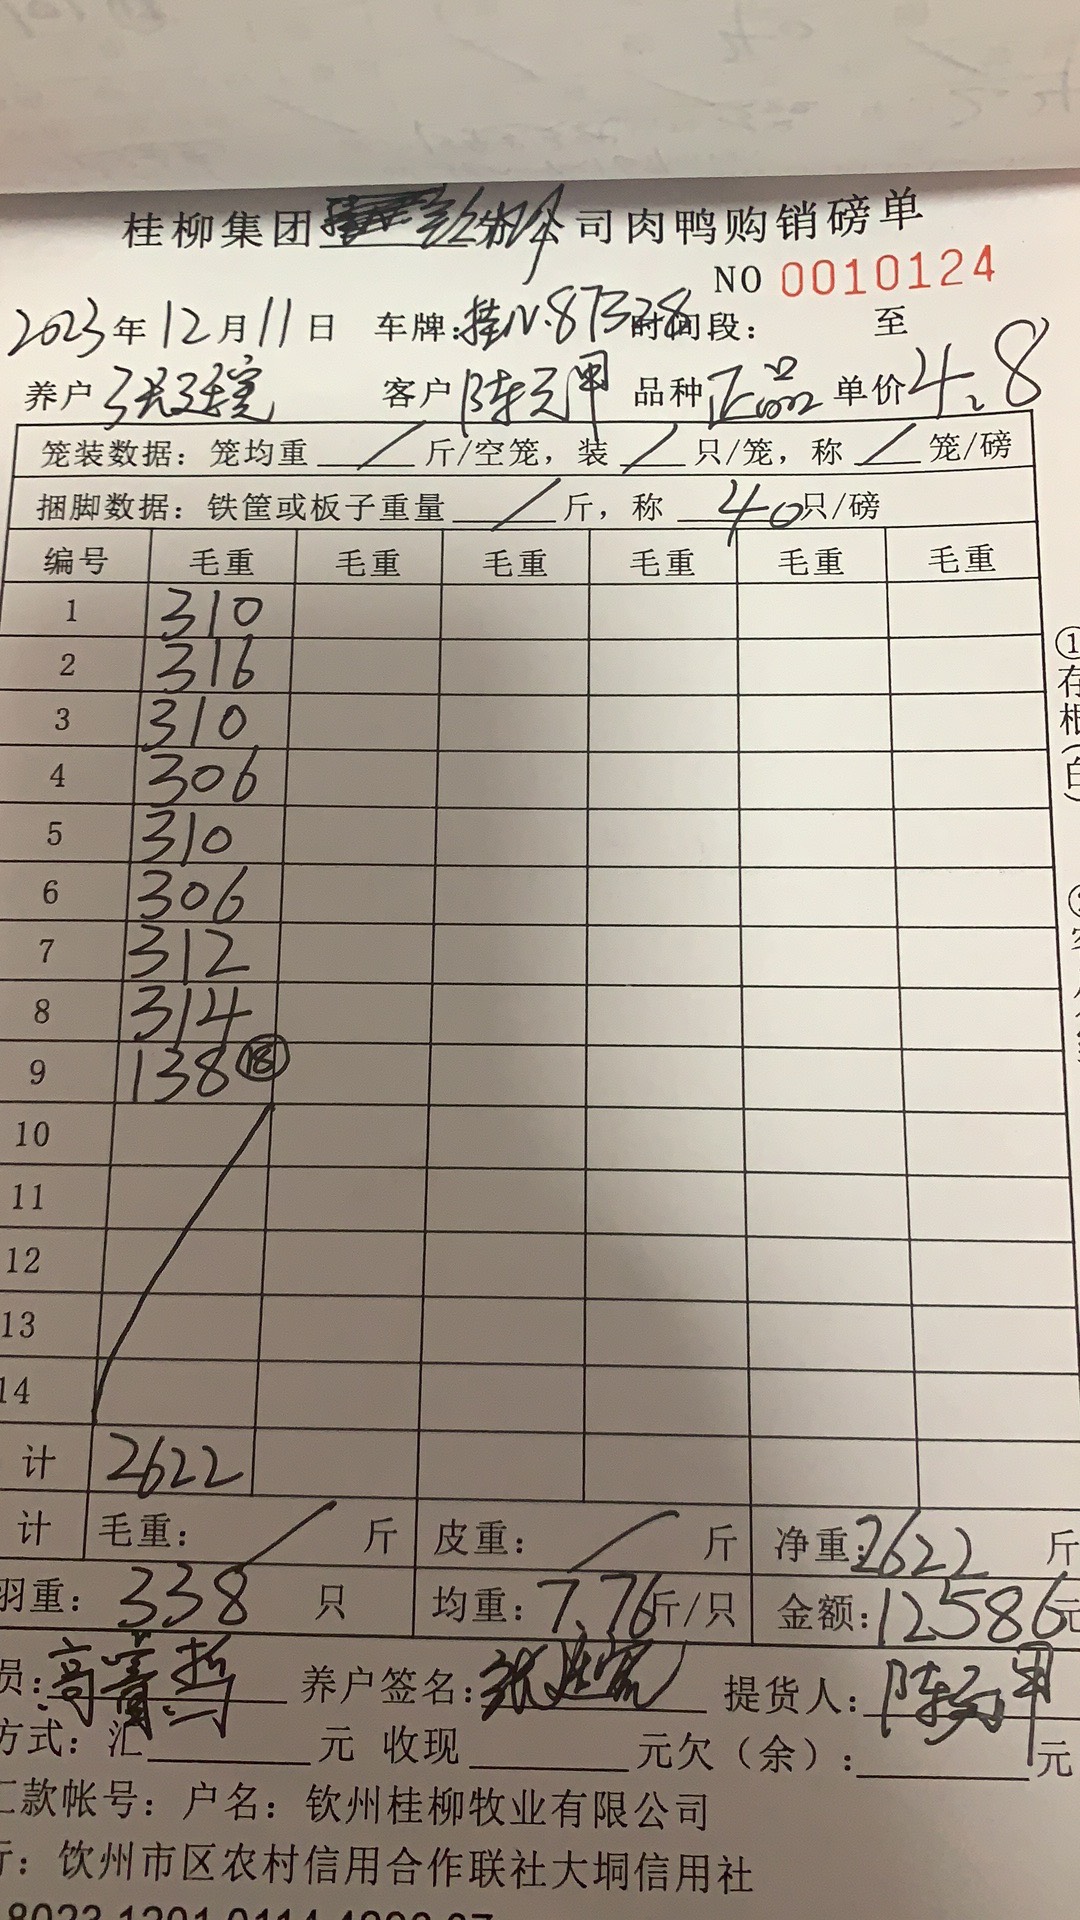 桂柳集团 公司肉鸭购销磅单
NO 0010124
2023年12月11日 车牌:桂N·87328 时间段: 至
养户 客户 陈元甲 品种 正品 单价 4.8
笼装数据: 笼均重 / 斤/空笼, 装 / 只/笼, 称 / 笼/磅
捆脚数据: 铁筐或板子重量 / 斤, 称 40 只/磅
编号 毛重 毛重 毛重 毛重 毛重 毛重
1 310
2 316
3 310
4 306
5 310
6 306
7 312
8 314
9 138 ⑱
10
11
12
13
14
计 2622
计 毛重: / 斤 皮重: / 斤 净重: 2622 斤
羽重: 338 只 均重: 7.76 斤/只 金额: 12586 元
员: 养户签名: 提货人: 陈元甲
方式: 汇 元 收现 元欠(余): 元
汇款帐号: 户名: 钦州桂柳牧业有限公司
行: 钦州市区农村信用合作联社大垌信用社
①存根(白)